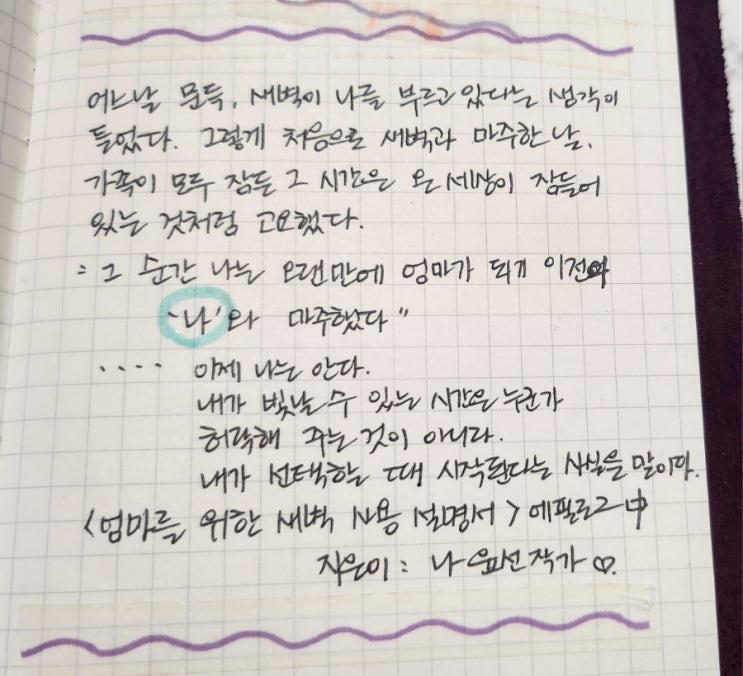 어느날 문득, 새벽이 나를 부르고 있다는 생각이
들었다. 그렇게 처음으로 새벽과 마주한 날.
가족이 모두 잠든 그 시간은 온 세상이 잠들어
있는 것처럼 고요했다.
" 그 순간 나는 오랜만에 엄마가 되기 이전의
'나'와 마주했다"
.... 이제 나는 안다.
내가 빛날 수 있는 시간은 누군가
허락해 주는 것이 아니라.
내가 선택하는 때 시작된다는 사실을 말이다.
<엄마를 위한 새벽 사용 설명서> 에필로그 中
지은이 : 나윤선 작가 ♡.